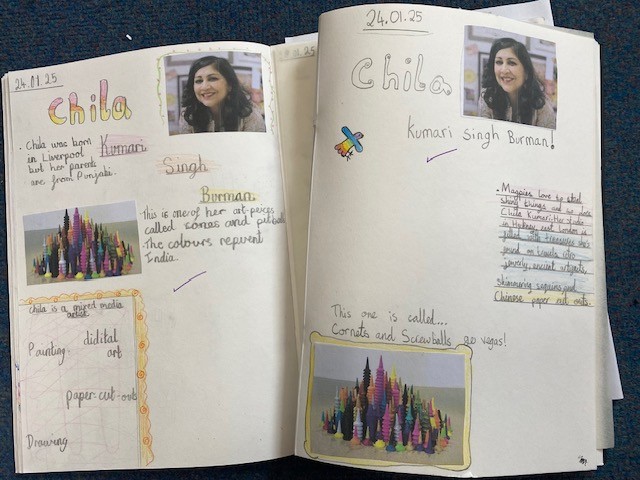 24.01.25
Chila
. Chila was born
in Liverpool
but her parents
are from Punjabi.
Kumari
Singh
Burman
This is one of her art-peices
called cones and
The colours repvent
India.
chila is a mixed media
artist
Painting
didital
art
paper-cut-outs
Drawing
24.01.25
Chila
Kumari Singh Burman!
. Magpies love to steal
shiny things and so does
Chila Kumari. Her studio
in Hackney, east London is
filled with treasures she's
found on travels like
jewerly, ancient artifacts,
shimmering sequins, and
Chinese paper cut outs.
This one is called...
Cornets and Screwballs go vegas!